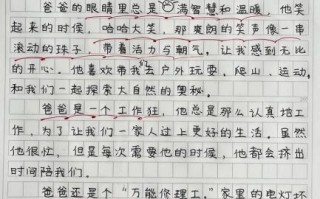 爸爸的眼睛里总是满智慧和温暖，他笑
起来的时候，哈哈大笑，那爽朗的笑声像一串
滚动的珠子，带着活力与朝气，让我感到无比
的开心。他喜欢带我去户外玩耍，爬山，运动，
和我们一起探索大自然的奥秘。
爸爸是一个工作狂，他总是那么认真地工
作，为了让我们一家人过上更好的生活。虽然
他很忙，但是每次需要他的时候，他都会挤出
时间陪我们。
爸爸还是个“万能修理工”，家里的电灯坏